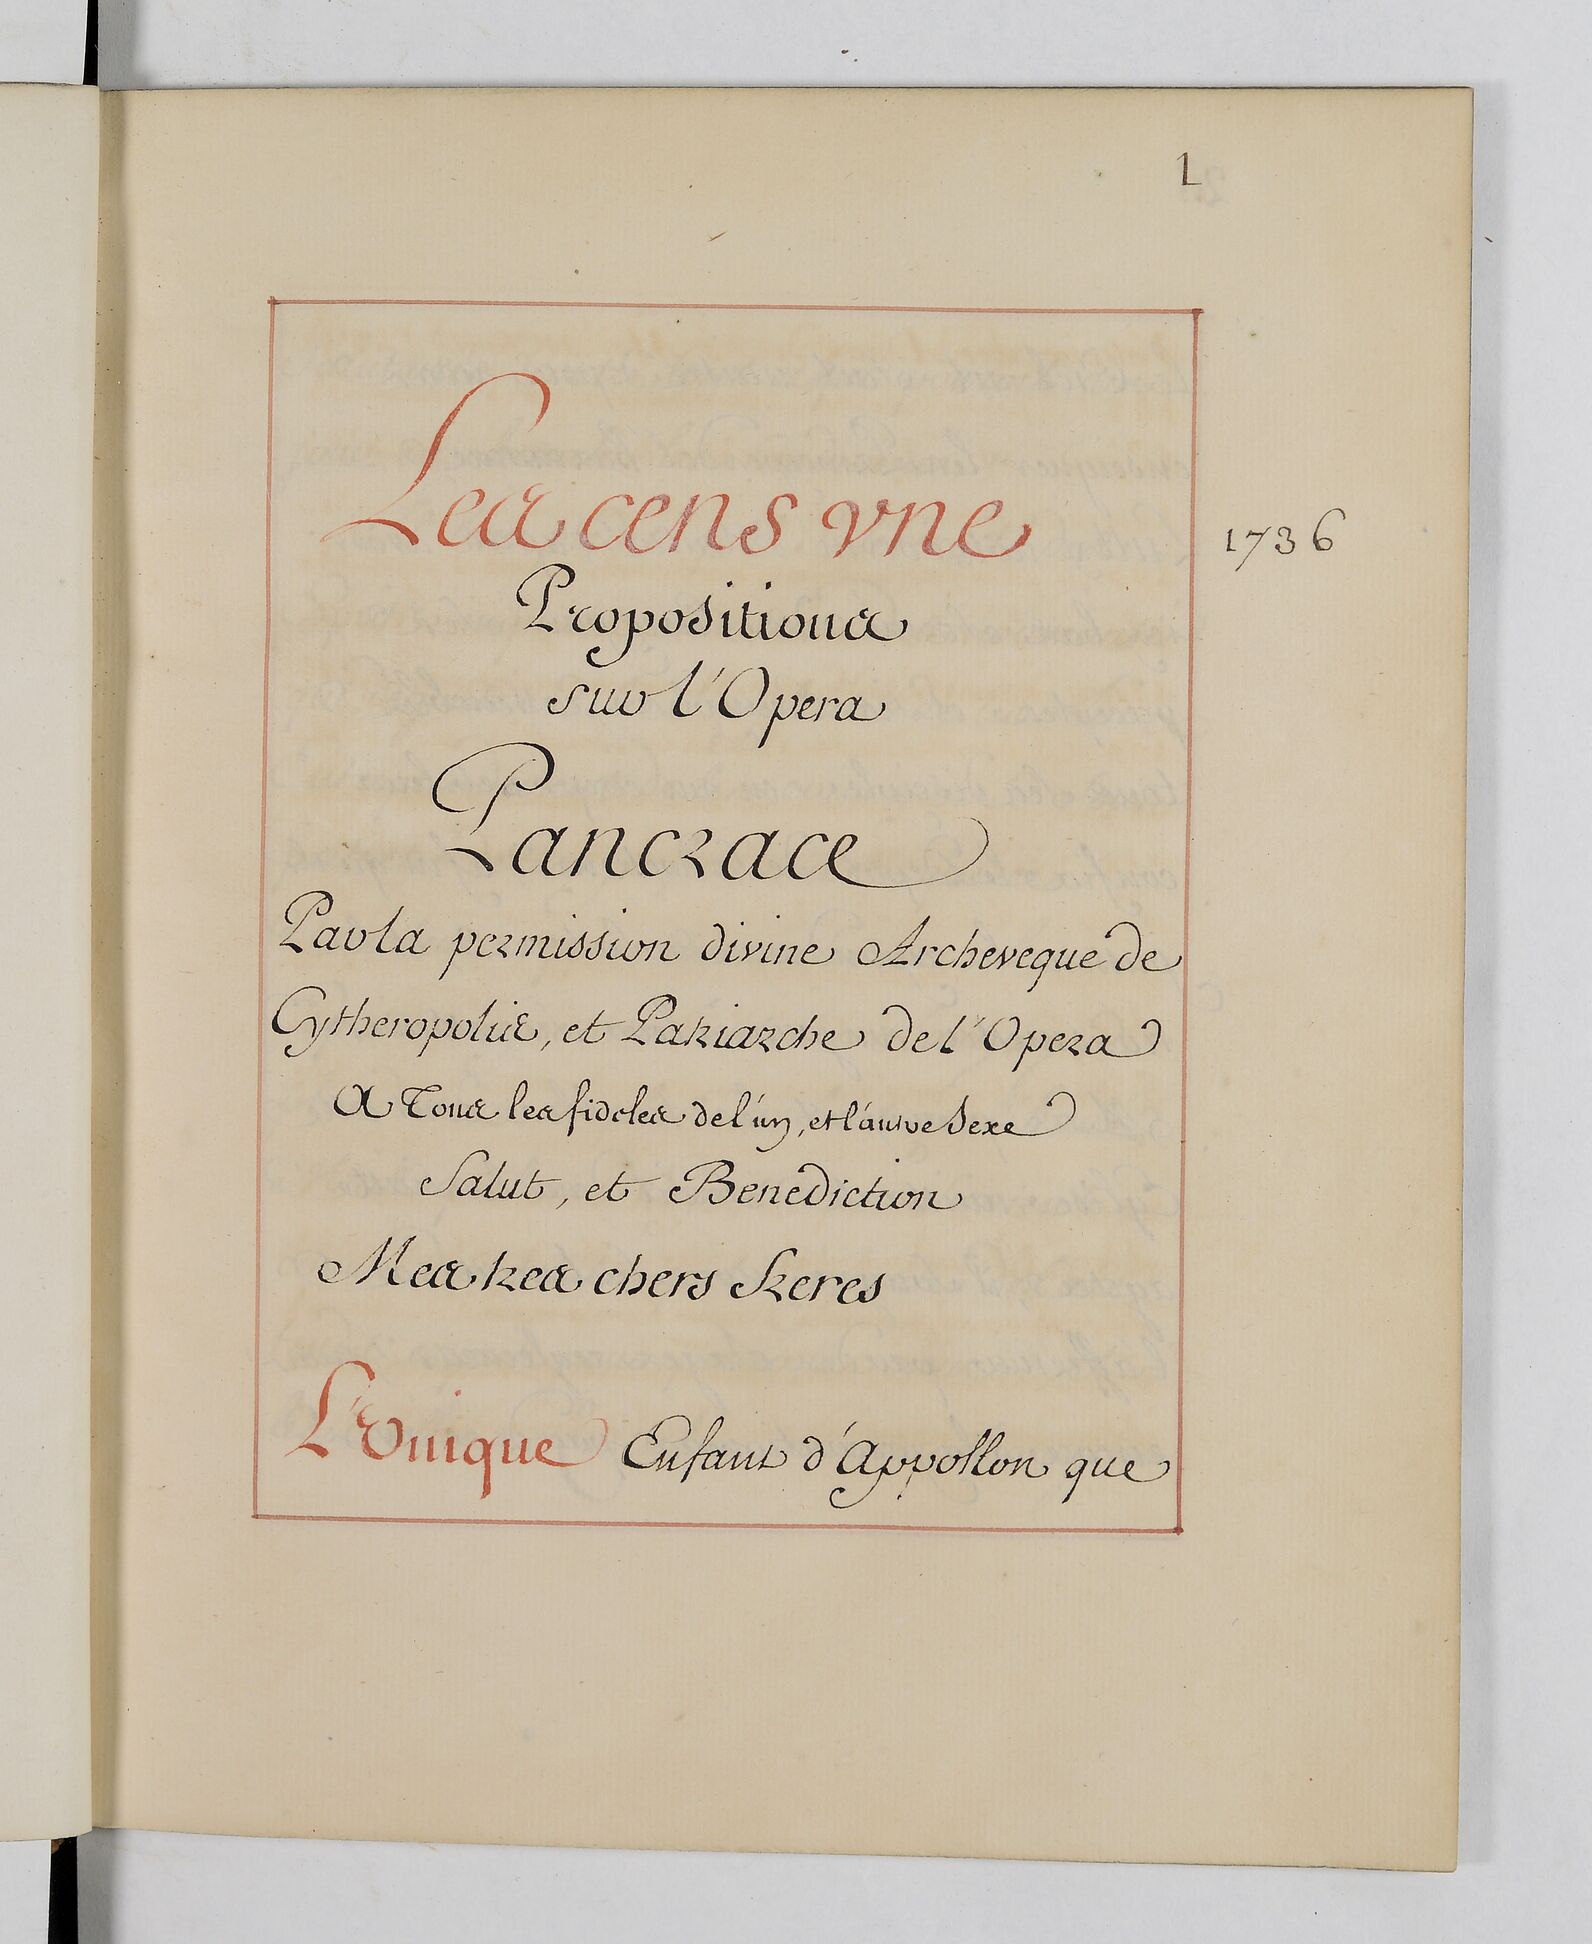 1
Les cens une
1736
Propositions
sur l'Opera
Pancrace
Par la permission divine Archeveque de
Cytheropolis, et Patriarche de l'Opera
A Tous les fideles de l'un, et l'autre Sexe
Salut, et Benediction
Mes tres chers freres
L'Unique Enfant d'Appollon que